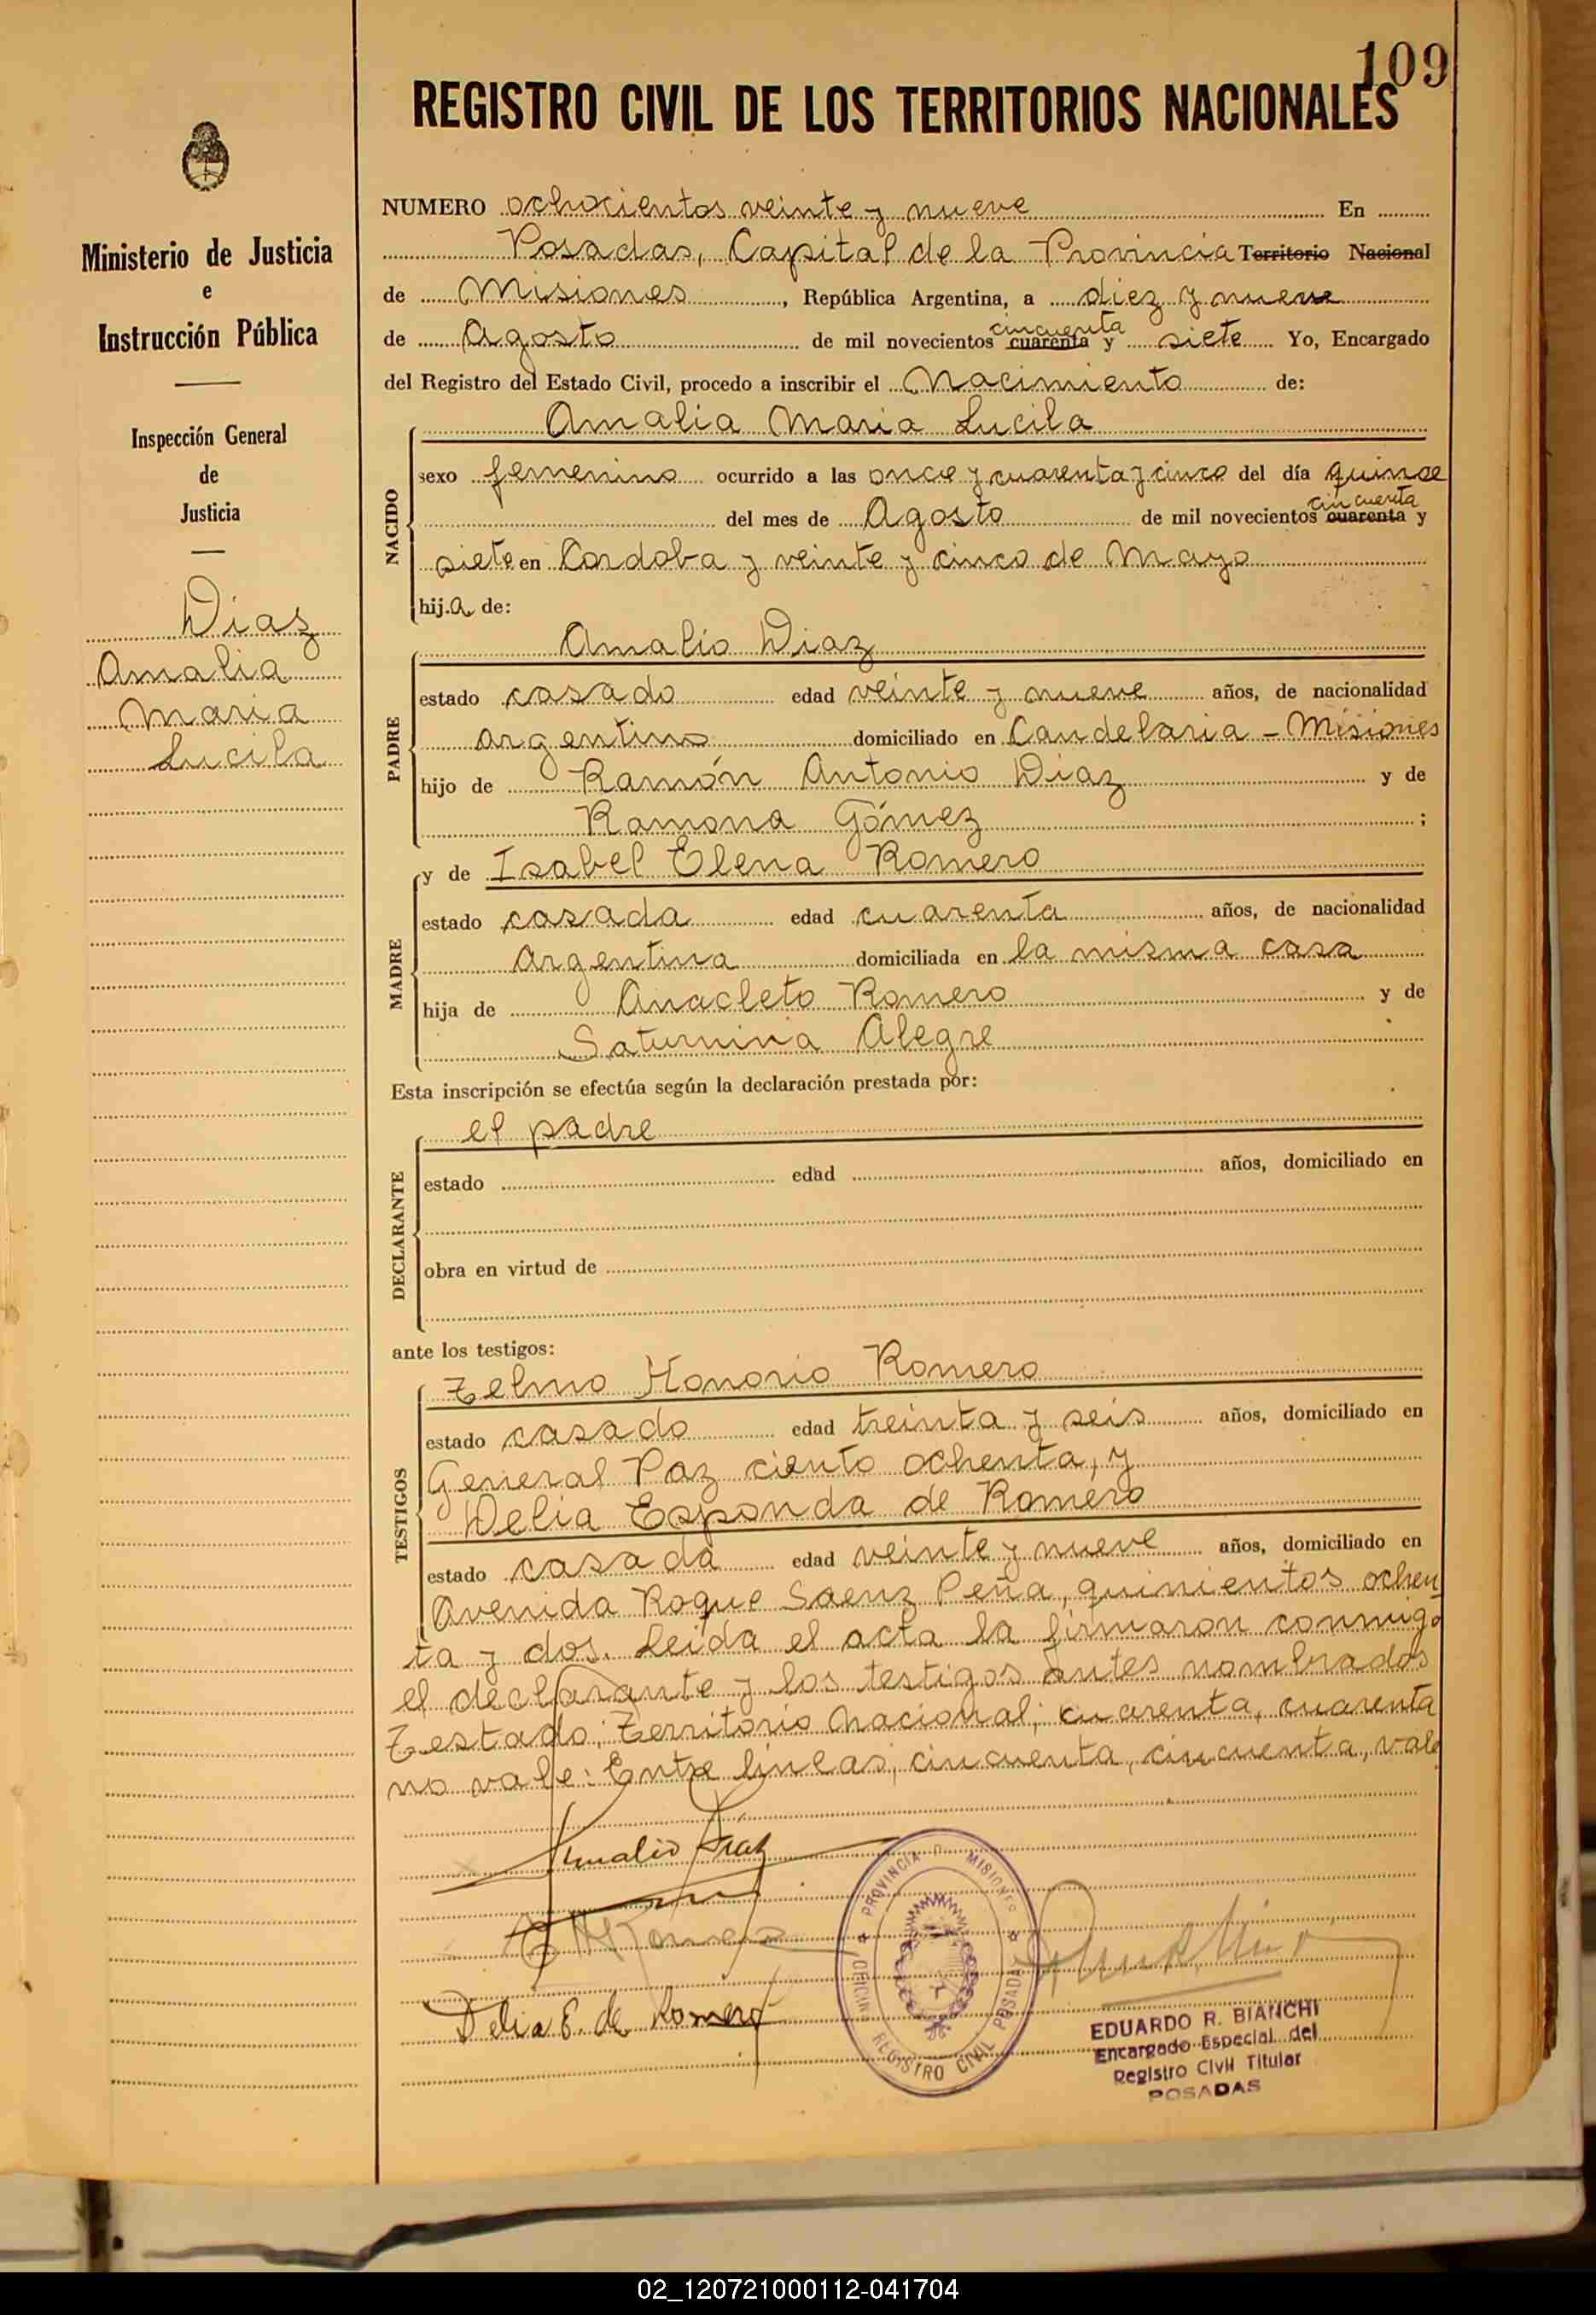 109
REGISTRO CIVIL DE LOS TERRITORIOS NACIONALES
Ministerio de Justicia
e
Instrucción Pública
Inspección General
de
Justicia
Diaz
Amalia
Maria
Lucila
NUMERO ochocientos veinte y nueve En
Posadas, Capital de la Provincia Territorio Nacional
de Misiones, República Argentina, a diez y nueve
de Agosto de mil novecientos cuarenta cincuenta y siete Yo, Encargado
del Registro del Estado Civil, procedo a inscribir el Nacimiento de:
NACIDO
Amalia Maria Lucila
sexo femenino ocurrido a las once y cuarenta y cinco del día quince
del mes de Agosto de mil novecientos cuarenta cincuenta y
siete en Cordoba y veinte y cinco de Mayo
hij.a de:
PADRE
Amalio Diaz
estado casado edad veinte y nueve años, de nacionalidad
argentino domiciliado en Candelaria - Misiones
hijo de Ramón Antonio Diaz y de
Ramona Gómez ;
MADRE
y de Isabel Elena Romero
estado casada edad cuarenta años, de nacionalidad
argentina domiciliada en la misma casa
hija de Anacleto Romero y de
Saturnina Alegre
Esta inscripción se efectúa según la declaración prestada por:
DECLARANTE
el padre
estado edad años, domiciliado en
obra en virtud de
ante los testigos:
TESTIGOS
Telmo Honorio Romero
estado casado edad treinta y seis años, domiciliado en
General Paz ciento ochenta, y
Delia Esponda de Romero
estado casada edad veinte y nueve años, domiciliado en
Avenida Roque Saenz Peña, quinientos ochen-
ta y dos. Leida el acta la firmaron conmigo
el declarante y los testigos antes nombrados
Testado: Territorio Nacional; cuarenta, cuarenta
no vale: Entre lineas; cincuenta, cincuenta, vale
Amalio Diaz
Delia E. de Romero
PROVINCIA D MISIONES
OFICINA REGISTRO CIVIL POSADAS
EDUARDO R. BIANCHI
Encargado Especial del
Registro Civil Titular
POSADAS
02_120721000112-041704